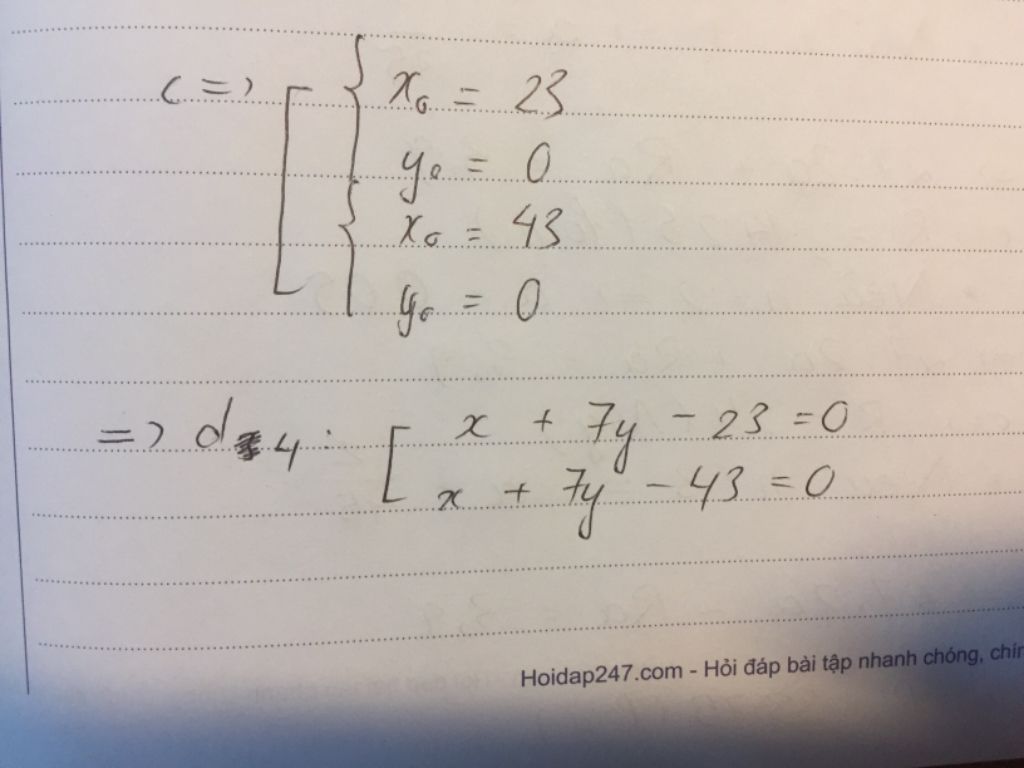 <=> [ { x₀ = 23
y₀ = 0
{ x₀ = 43
y₀ = 0
=> d 4 : [ x + 7y - 23 = 0
x + 7y - 43 = 0
Hoidap247.com - Hỏi đáp bài tập nhanh chóng,